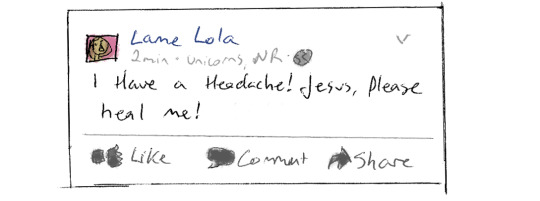 Lame Lola
2min · Unicorns, NR ·
I Have a Headache! Jesus, Please
heal me!
Like Comment Share